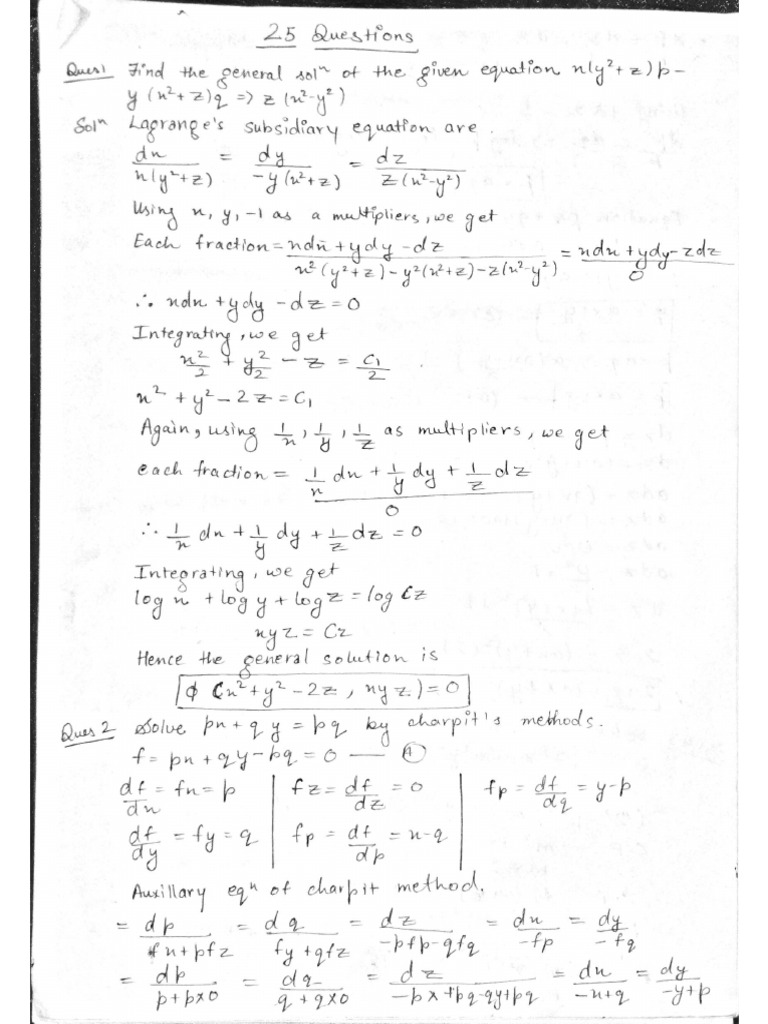 25 Questions
Ques1 Find the general solⁿ of the given equation x(y²+z)p −
y(x²+z)q => z(x²-y²)
Solⁿ Lagrange's subsidiary equation are.
dx/x(y²+z) = dy/-y(x²+z) = dz/z(x²-y²)
Using x, y, -1 as a multipliers, we get
Each fraction = xdx+ydy-dz/x²(y²+z)-y²(x²+z)-z(x²-y²) = xdx+ydy-zdz/0
∴ xdx+ydy-dz=0
Integrating, we get
x²/2 + y²/2 - z = C₁/2
x²+y²-2z=C₁
Again, using 1/x, 1/y, 1/z as multipliers, we get
each fraction = 1/x dx + 1/y dy + 1/z dz/0
∴ 1/x dx + 1/y dy + 1/z dz = 0
Integrating, we get
log x + log y + log z = log C₂
xyz = C₂
Hence the general solution is
ϕ (x²+y²-2z, xyz)=0
Ques 2 Solve px+qy=pq by charpit's methods.
f = px+qy-pq=0 — (A)
df/dx = fx = p | fz = df/dz = 0 | fp = df/dq = y-p
df/dy = fy = q | fp = df/dp = x-q
Auxillary eqⁿ of charpit method.
= dp/fx+pfz = dq/fy+qfz = dz/-pfp-qfq = dx/-fp = dy/-fq
= dp/p+p×0 = dq/q+q×0 = dz/-px+pq-qy+pq = dx/-x+q = dy/-y+p